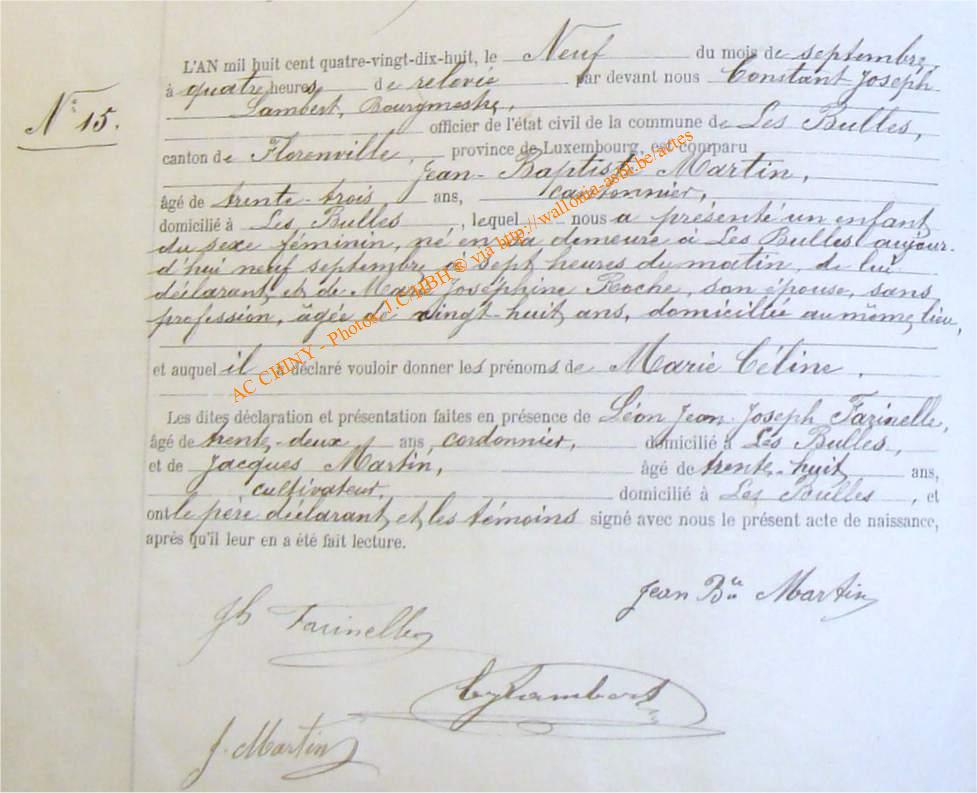 L'AN mil huit cent quatre-vingt-dix-huit, le Neuf du mois de septembre,
à quatre heures de relevée par devant nous Constant Joseph
Lambert, Bourgmestre,
N° 15.
officier de l'état civil de la commune de Les Bulles,
canton de Florenville, province de Luxembourg, est comparu
Jean-Baptiste Martin,
âgé de trente-trois ans, cantonnier,
domicilié à Les Bulles, lequel nous a présenté un enfant
du sexe féminin, né en sa demeure à Les Bulles aujour-
d'hui neuf septembre à sept heures du matin, de lui
déclarant et de Marie Joséphine Roche, son épouse, sans
profession, âgée de vingt-huit ans, domiciliée au même lieu,
et auquel il a déclaré vouloir donner les prénoms de Marie Céline.
Les dites déclaration et présentation faites en présence de Léon Jean-Joseph Fazinelle,
âgé de trente-deux ans, cordonnier, domicilié à Les Bulles,
et de Jacques Martin, âgé de trente-huit ans,
cultivateur, domicilié à Les Bulles, et
ont le père déclarant et les témoins signé avec nous le présent acte de naissance,
après qu'il leur en a été fait lecture.
Jean Bte Martin
Jh Farinelle
CJ Lambert
J. Martin
AC CHINY - Photos J.C.HBH ® via http://wallonia-asbl.be/actes